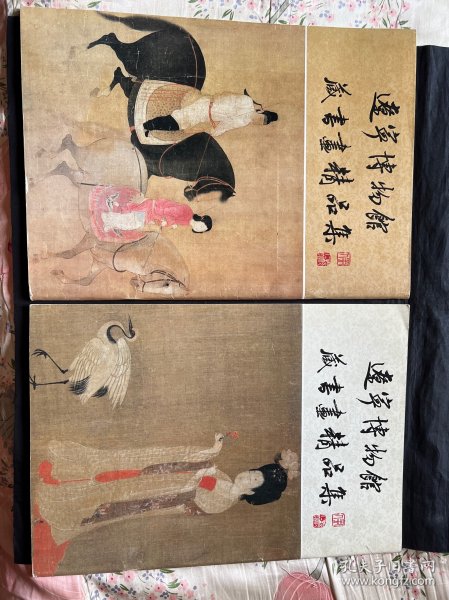 遼寧博物館
藏書畫精品集
遼寧博物館
藏書畫精品集
孔夫子旧书网
www.kongfz.com